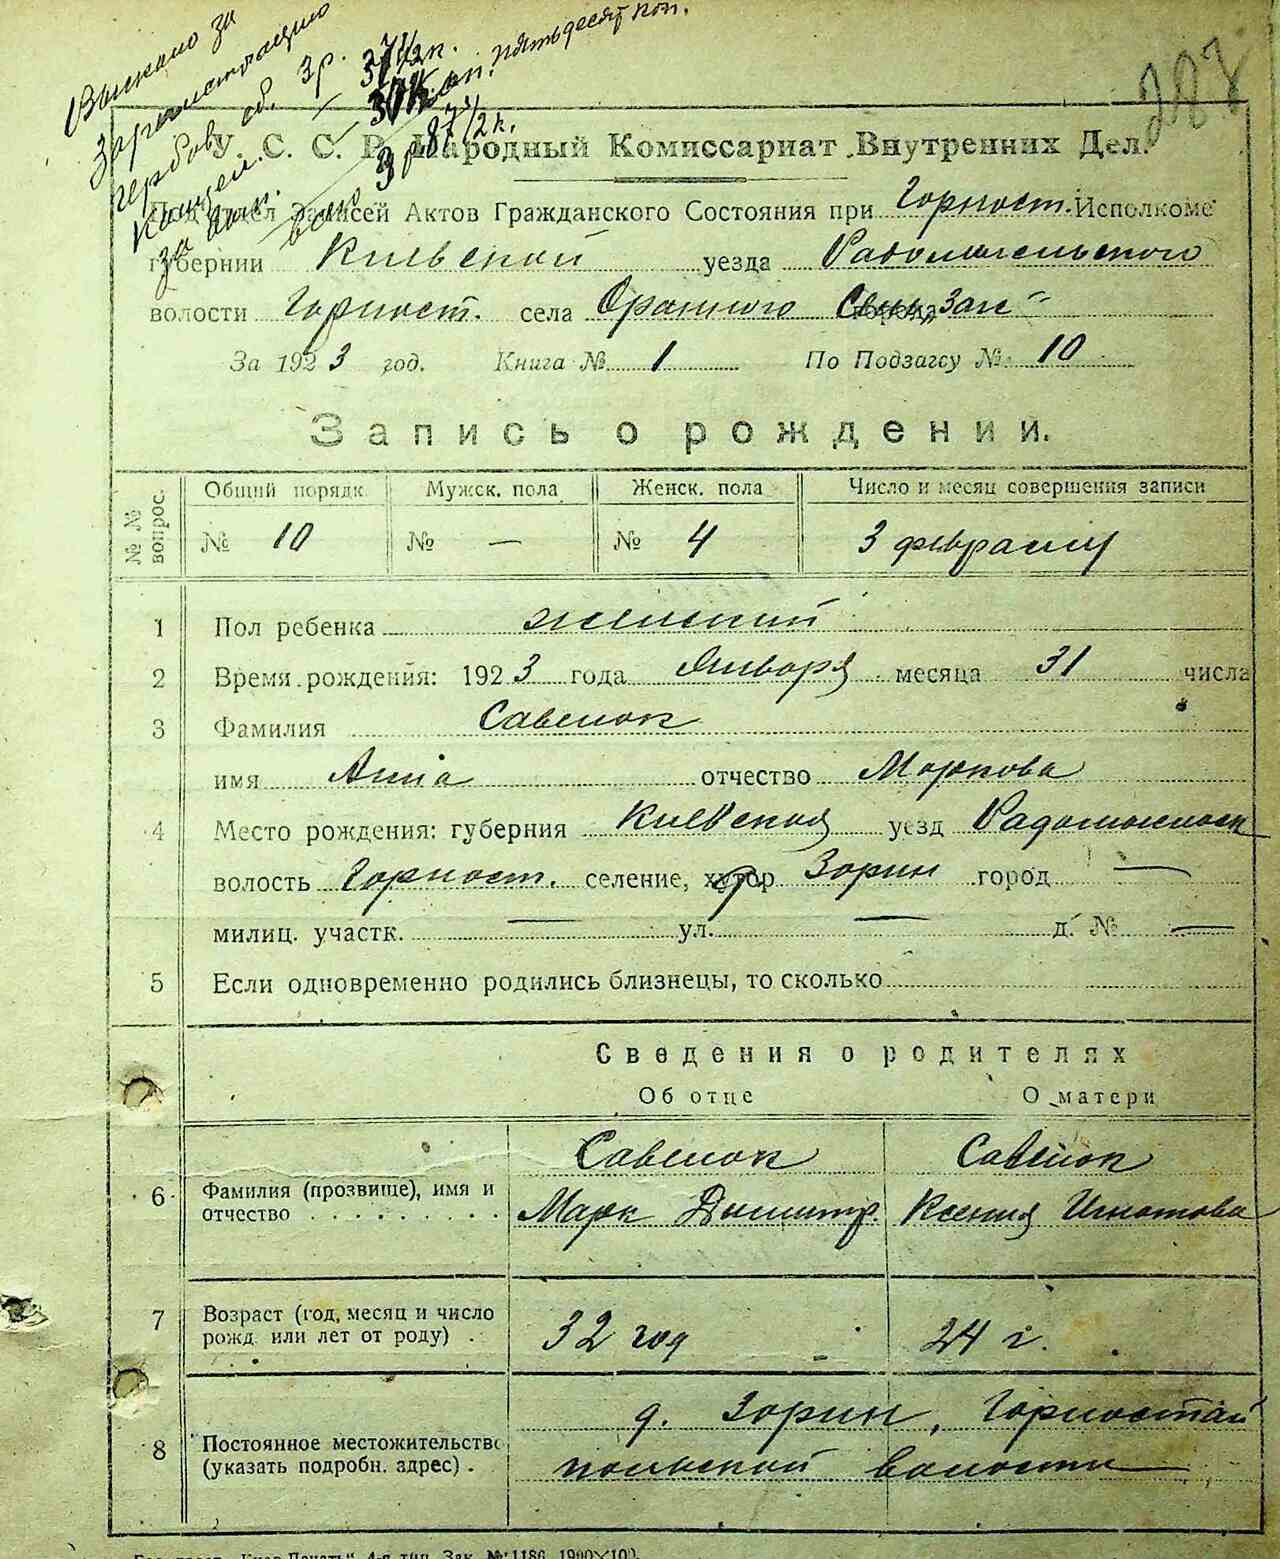 Взыскано за
Зарегистрацию
гербов. сб. 3 р. 37 1/2 к.
Канцел. — 50 к. пятьдесят коп.
за блан.
всего 3 р 87 1/2 к.
287
У. С. С. Р. Народный Комиссариат Внутренних Дел.
Подотдел Записей Актов Гражданского Состояния при Горност. Исполкоме
губернии Киевской уезда Радомысльского
волости Горност. села Оранного
За 1923 год. Книга № 1 По Подзагсу № 10
Запись о рождении.
№ № вопрос. Общий порядк. Мужск. пола Женск. пола Число и месяц совершения записи
№ 10 № — № 4 3 февраля
1 Пол ребенка женский
2 Время рождения: 1923 года Января месяца 31 числа
3 Фамилия Савенок
имя Анна отчество Маркова
4 Место рождения: губерния Киевская уезд Радомысльск
волость Горност. селение, хутор Зорин город —
милиц. участк. — ул. — д. № —
5 Если одновременно родились близнецы, то сколько
Сведения о родителях
Об отце О матери
Савенок Савенок
6 Фамилия (прозвище), имя и
отчество Марк Димитр. Ксения Игнатова
7 Возраст (год, месяц и число
рожд. или лет от роду) 32 год 24 г.
8 Постоянное местожительство
(указать подробн. адрес) д. Зорин, Горностай
польской волости
Гос. трест „Киев-Печать“ 4-я тип. Зак. № 1186 1900×100.